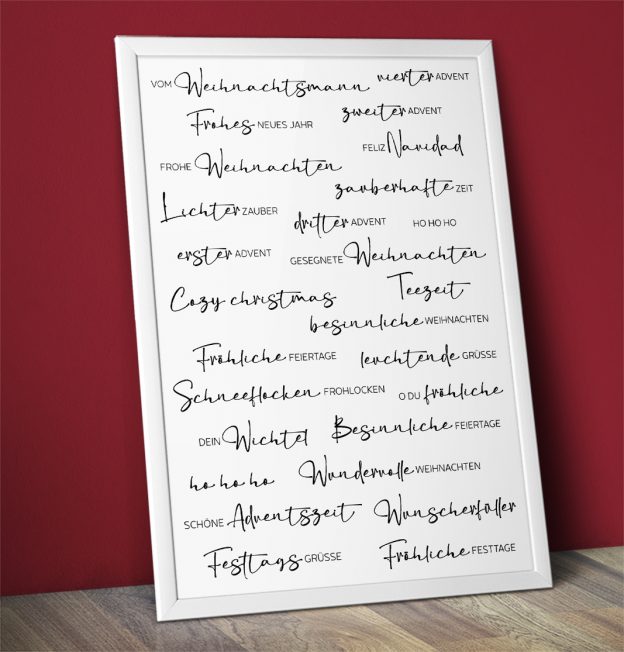 VOM Weihnachtsmann vierter ADVENT
Frohes NEUES JAHR zweiter ADVENT
FELIZ Navidad
FROHE Weihnachten
zauberhafte ZEIT
Lichter ZAUBER dritter ADVENT HO HO HO
erster ADVENT GESEGNETE Weihnachten
Cozy christmas Teezeit
besinnliche WEIHNACHTEN
Fröhliche FEIERTAGE leuchtende GRÜSSE
Schneeflocken FROHLOCKEN O DU fröhliche
DEIN Wichtel Besinnliche FEIERTAGE
ho ho ho Wundervolle WEIHNACHTEN
SCHÖNE Adventszeit Wunscherfüller
Festtags GRÜSSE Fröhliche FESTTAGE